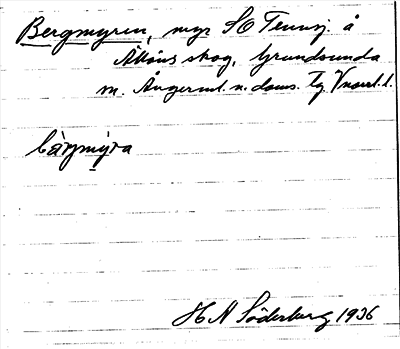 Bergmyren, myr SO Tennsj. å
skog, Grundsunda
m. Ångerml. n. doms. Tg
bärmýra
H A Söderberg 1936